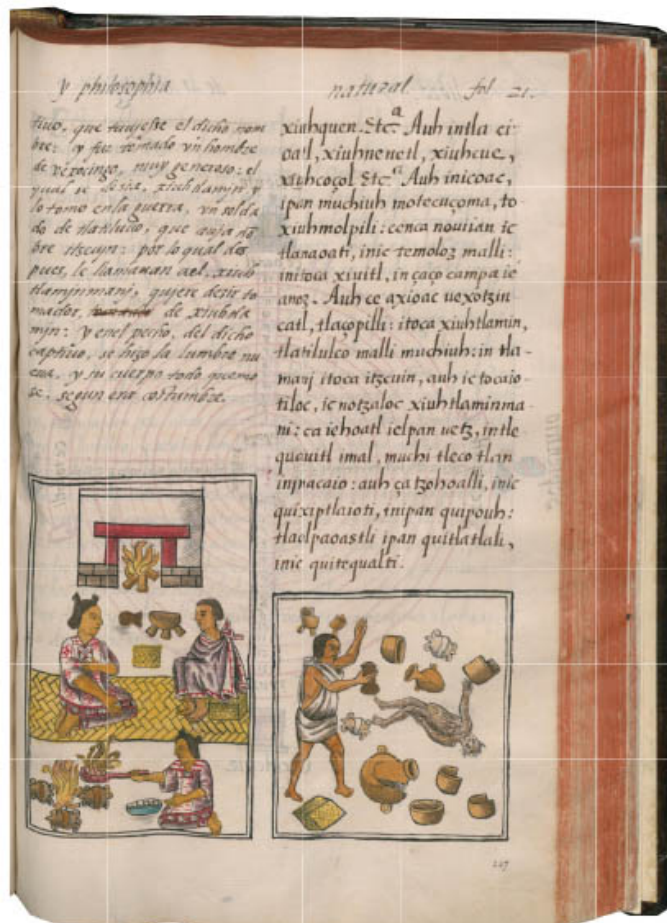 y philosophia natural fol 21.
tiuo, que tuujesse el dicho nom
bre: y fue tomado vn hombre
de vexocingo, muy generoso: el
qual se dezia, xiuhtlamjn y
lo tomo en la guerra, vn solda
do de tlatilulco, que auja nõ
bre itzcujn: por lo qual des
pues, le llamauan ael. xiuh
tlamjnmanj, qujere dezir to
mador, de xiuhtla
mjn: y enel pecho, del dicho
captiuo, se hizo la lumbre nu
eua. y su cuerpo todo quemo
se. segun era costumbre.
xiuhquen. Etcª Auh intla ci
oatl, xiuhnenetl, xiuhcue,
xiuhcoçol Etcª Auh inicoac,
ipan muchiuh motecuçoma, to
xiuhmolpili: cenca nouiian ic
tlanaoati, inic temoloz malli:
initoca xiuitl, in çaço campa ie
anoz. Auh ce axioac uexotzin
catl, tlaçopilli: itoca xiuhtlamin,
tlatilulco malli muchiuh: in tla
manj itoca itzcuin, auh ic tocaio
tiloc, ic notzaloc xiuhtlaminma
ni: ca iehoatl ielpan uetz, in tle
quauitl imal, muchi tleco tlan
injnacaio: auh ça tzohoalli, inic
quixiptlaioti, inipan quipouh:
tlaolpaoastli ipan quitlatlali,
inic quitequalti.
227